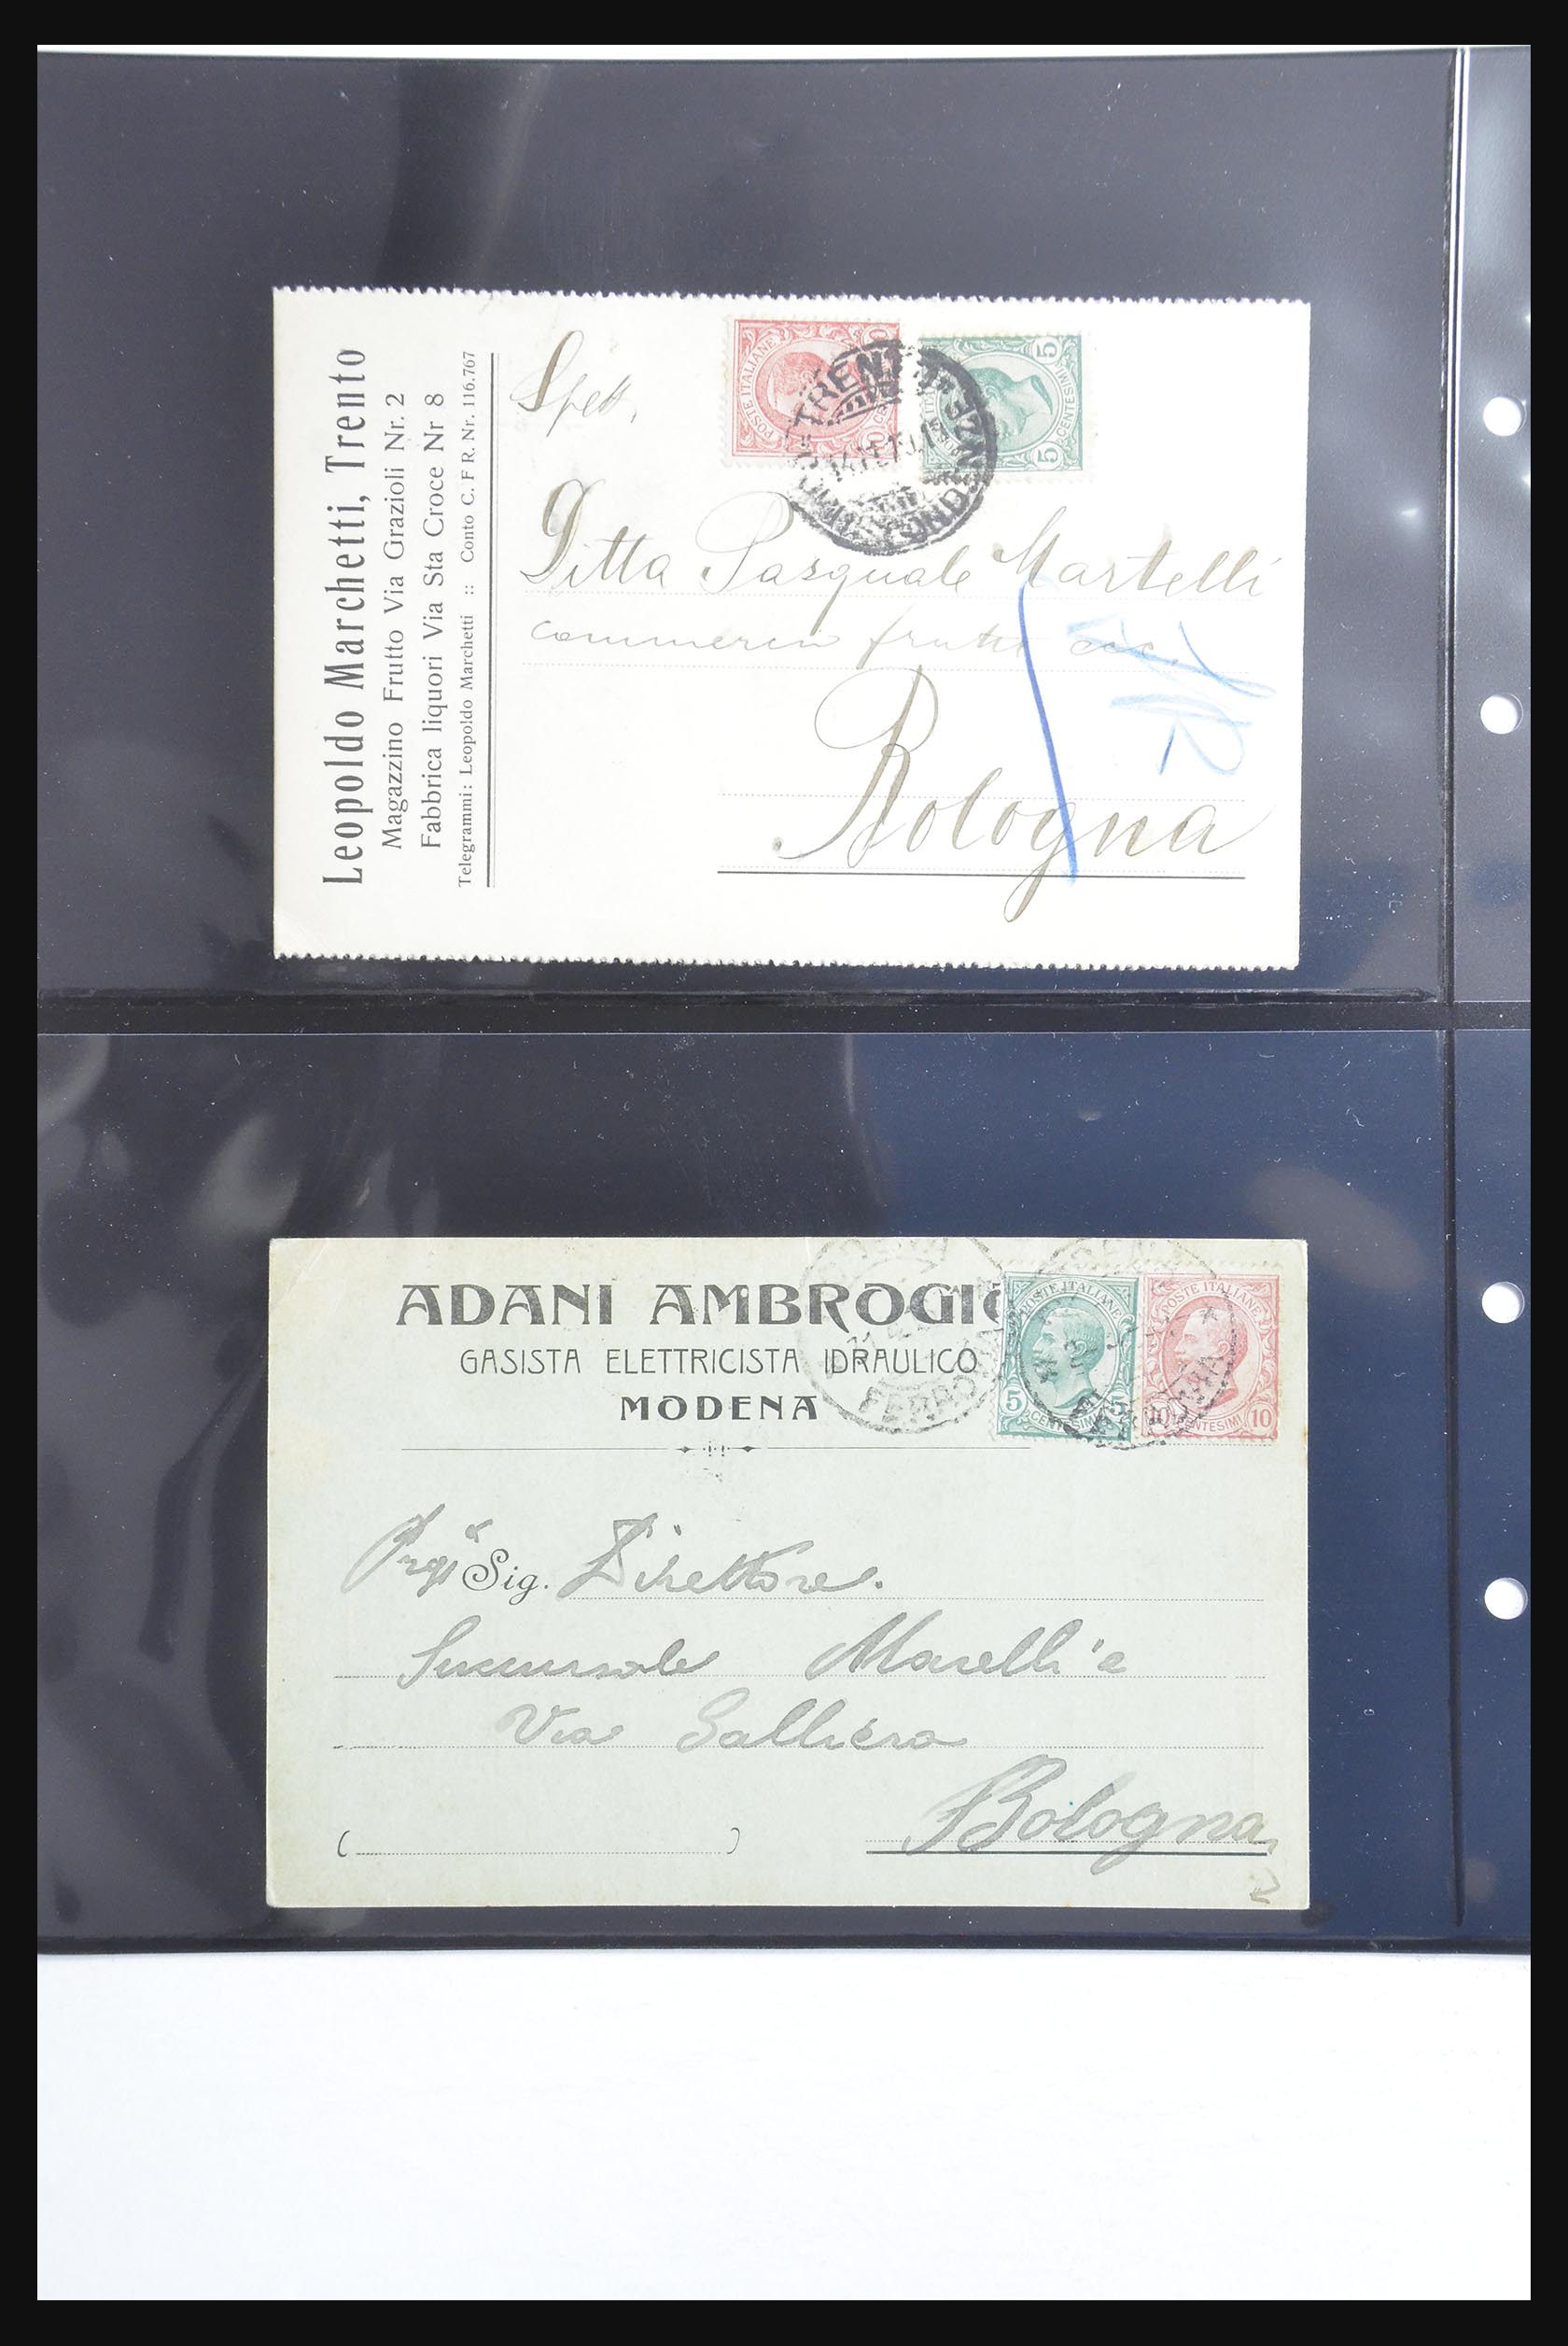 Leopoldo Marchetti, Trento
Magazzino Frutto Via Grazioli Nr. 2
Fabbrica liquori Via Sta Croce Nr 8
Telegrammi: Leopoldo Marchetti :: Conto C. F R. Nr. 116.767
POSTE ITALIANE
5 CENTESIMI 5
TRENTO
Spett.
Ditta Pasquale Martelli
commercio frutti ecc.
Bologna
ADANI AMBROGIO
GASISTA ELETTRICISTA IDRAULICO
MODENA
POSTE ITALIANE
5 CENTESIMI 5
POSTE ITALIANE
10 CENTESIMI 10
MODENA
FERROVIA
Sig. Direttore.
Succursale Marelli e
Via Galliera
Bologna